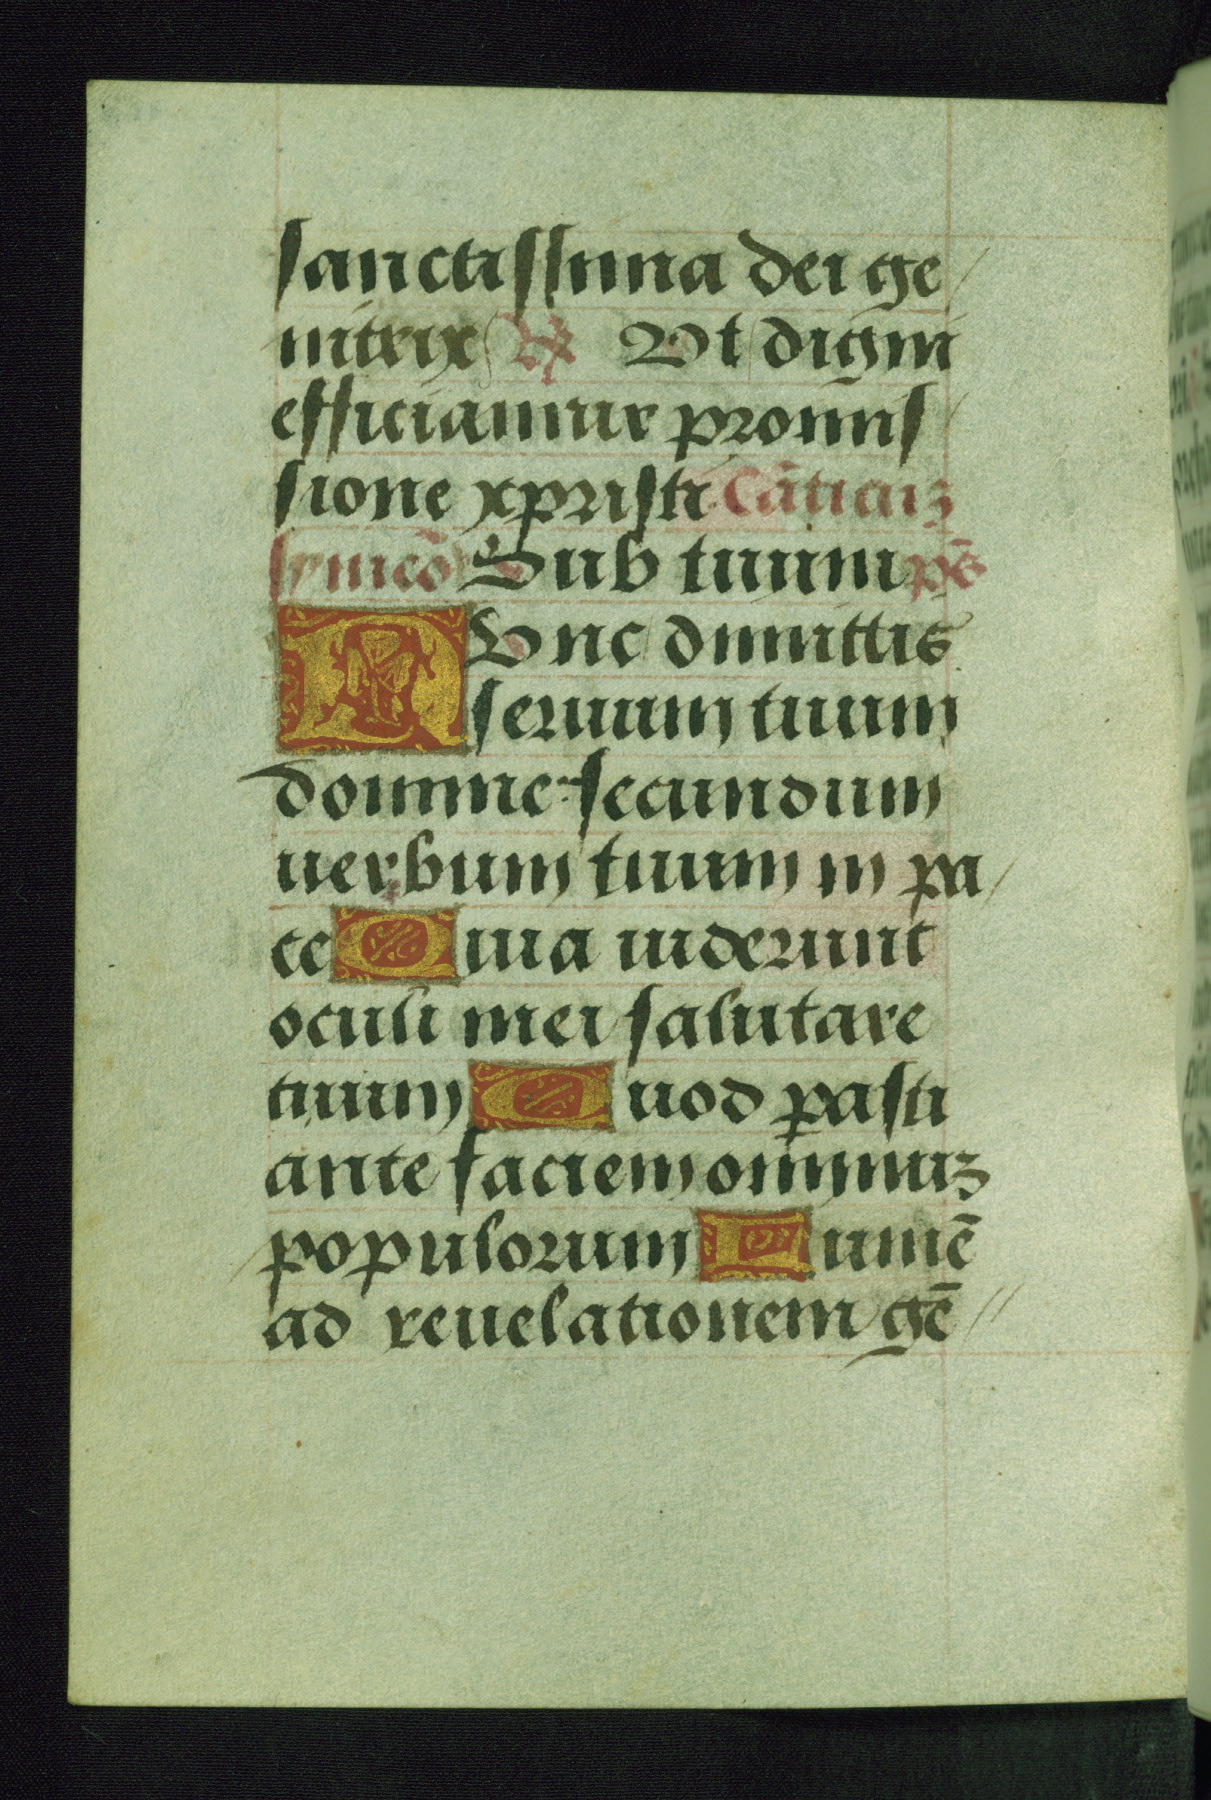 sanctissima dei ge
nitrix ℟ Vt digni
efficiamur promis
sione xpristi Cāticuȝ
symeō Sub tuum p̄s
NVnc dimittis
seruum tuum
domine secundum
uerbum tuum in pa
ce Quia uiderunt
oculi mei salutare
tuum Quod parasti
ante faciem omniuȝ
populorum Lumē
ad reuelationem gē